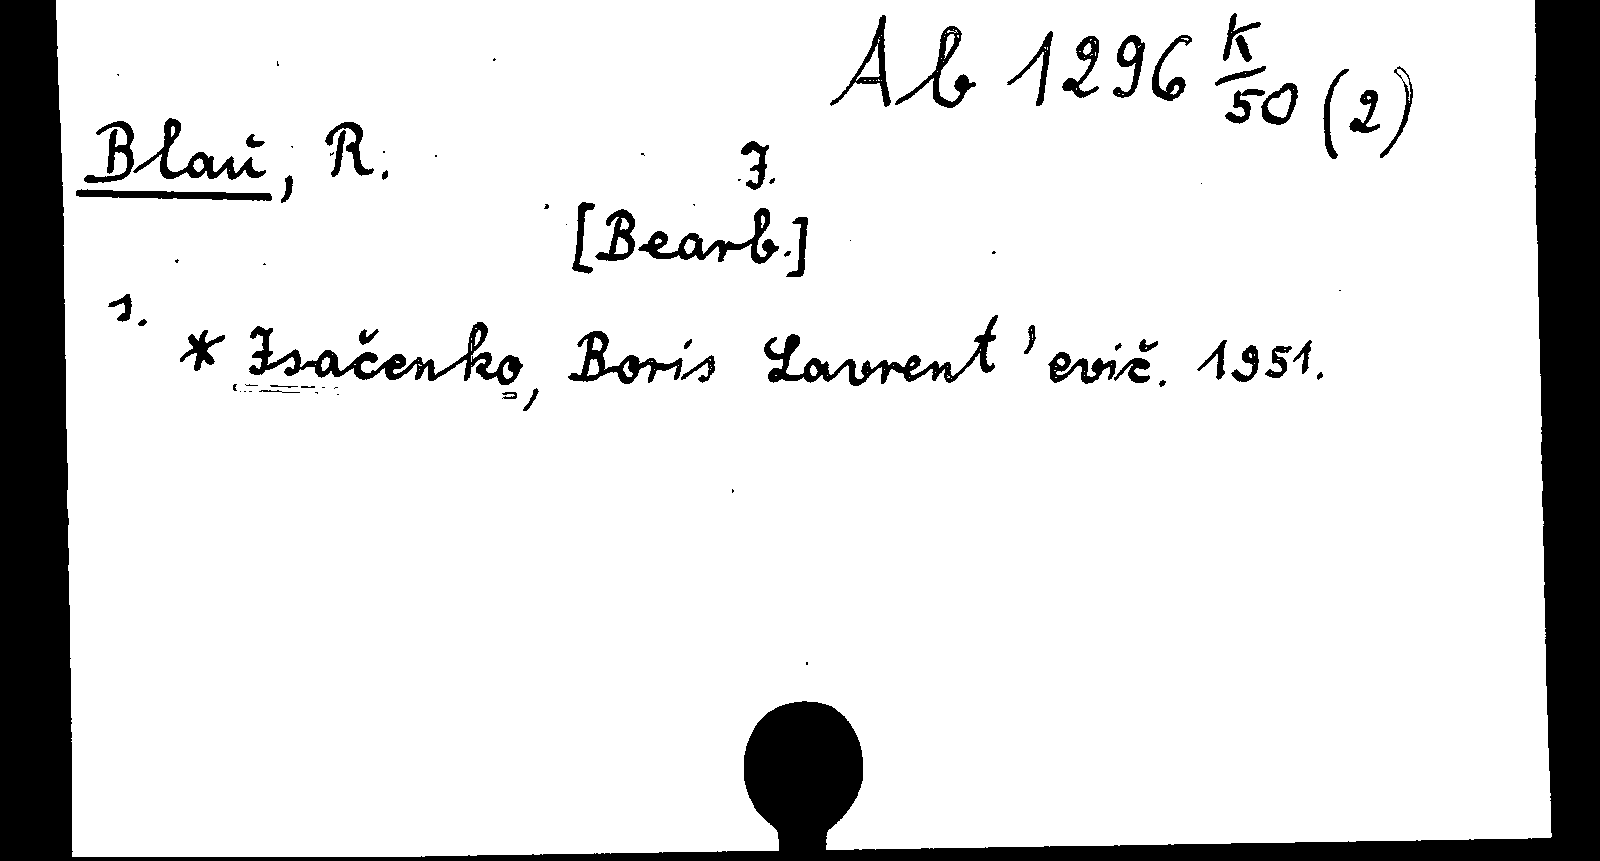 Ab 1296 K/50 (2)
Blau, R.
J.
[Bearb.]
s.
* Isačenko, Boris Lavrent'evič. 1951.